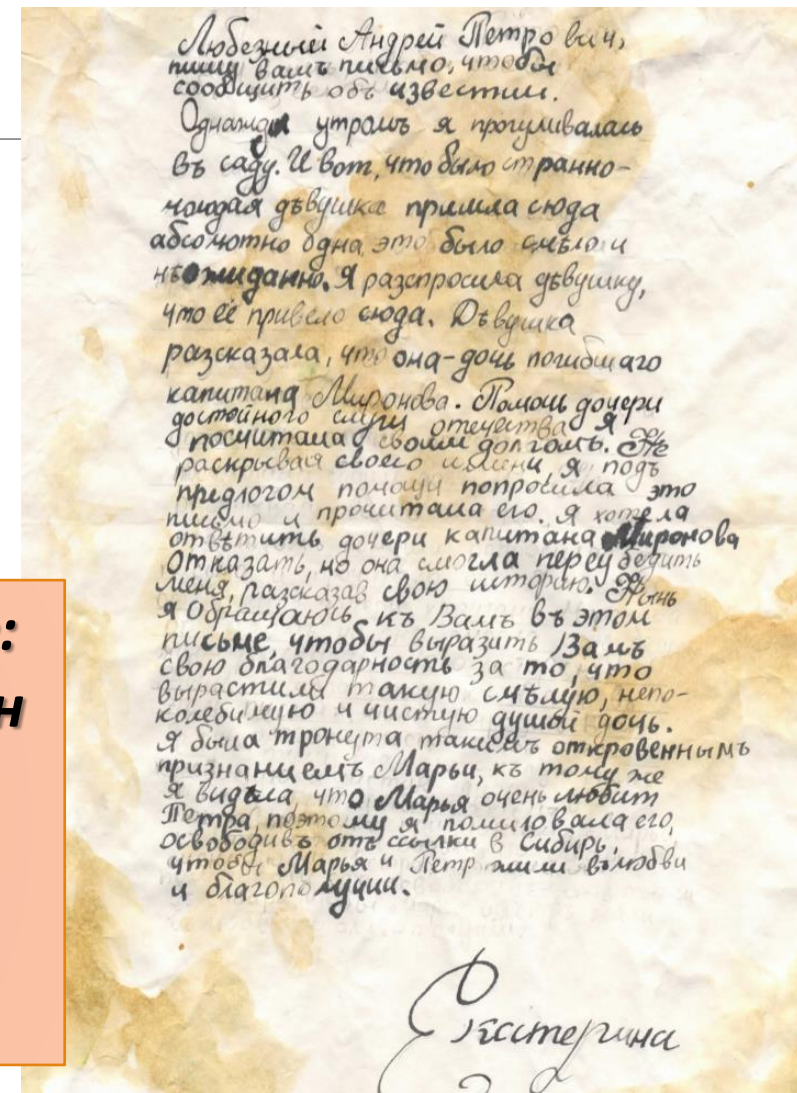 Любезный Андрей Петрович,
пишу вамъ письмо, чтобы
сообщить объ известии.
Однажды утромъ я прогуливалась
въ саду. И вот, что было странно-
молодая дѣвушка пришла сюда
абсолютно одна, это было смѣло и
нѣожиданно. Я разспросила дѣвушку,
что её привело сюда. Дѣвушка
разсказала, что она-дочь погибшаго
капитана Миронова. Помочь дочери
достойного слуги отечества я
посчитала своим долгомъ. Не
раскрывая своего имени, я подъ
предлогом помощи попросила это
письмо и прочитала его. Я хотела
отвѣтить дочери капитана Миронова
отказать, но она смогла переубедить
меня, разсказав свою историю. Нынь
я обращаюсь къ Вамъ въ этом
письме, чтобы выразить Вамъ
свою благодарность за то, что
вырастили такую смѣлую, непо-
колебимую и чистую душой дочь.
Я была тронута такимъ откровеннымъ
признаниемъ Марьи, къ тому же
я видѣла, что Марья очень любит
Петра, поэтому я помиловала его,
освободивъ отъ ссылки в Сибирь,
чтобы Марья и Петр жили въ любви
и благополучии.
Екатерина
:
н